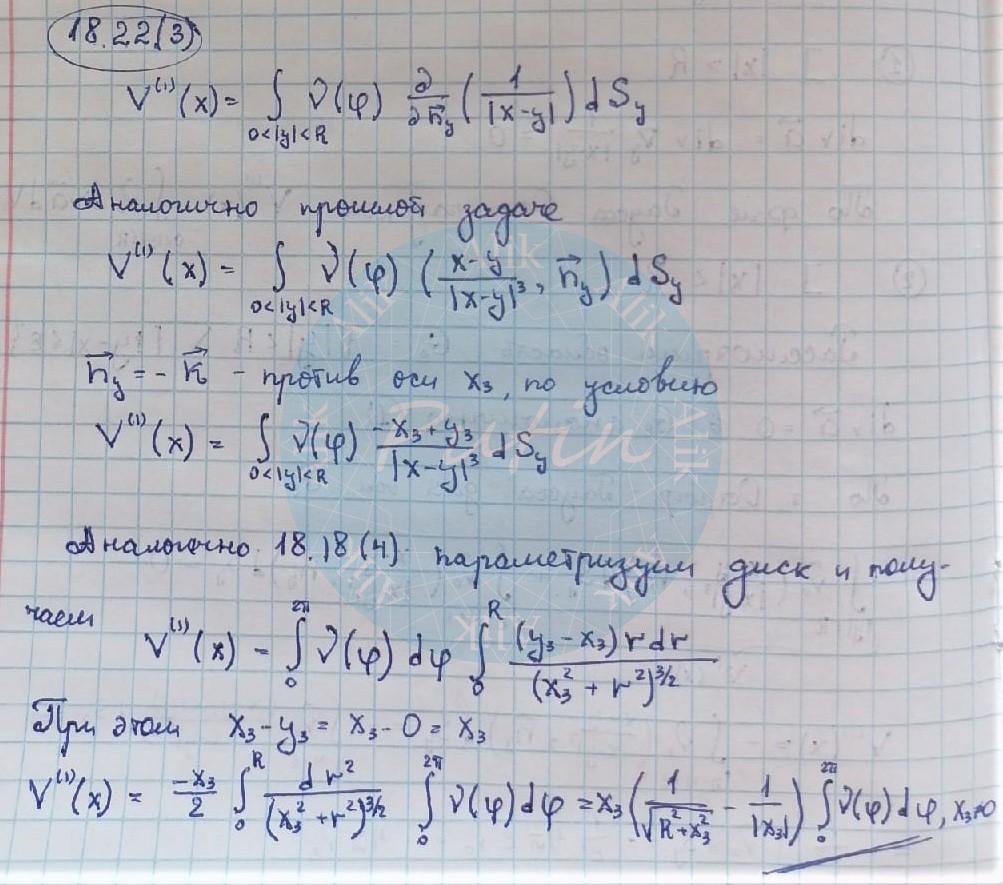 18.22(3)
V⁽¹⁾(x) = ∫_{0<|y|<R} ν(φ) ∂/∂n⃗_y (1/|x-y|) dS_y
Аналогично прошлой задаче
V⁽¹⁾(x) = ∫_{0<|y|<R} ν(φ) (x-y/|x-y|³, n⃗_y) dS_y
n⃗_y = -k⃗ - против оси x₃, по условию
V⁽¹⁾(x) = ∫_{0<|y|<R} ν(φ) -x₃+y₃/|x-y|³ dS_y
Аналогично 18.18(4) параметризуем диск и полу-
чаем V⁽¹⁾(x) = ∫₀^{2π} ν(φ) dφ ∫₀^R (y₃-x₃) r dr/(x₃²+r²)^{3/2}
При этом x₃-y₃ = x₃-0 = x₃
V⁽¹⁾(x) = -x₃/2 ∫₀^R dr²/(x₃²+r²)^{3/2} ∫₀^{2π} ν(φ) dφ = x₃(1/√(R²+x₃²) - 1/|x₃|) ∫₀^{2π} ν(φ) dφ, x₃≠0
Alik
Alik
Alik
Alik
Alik
Alik
Alik
Putin